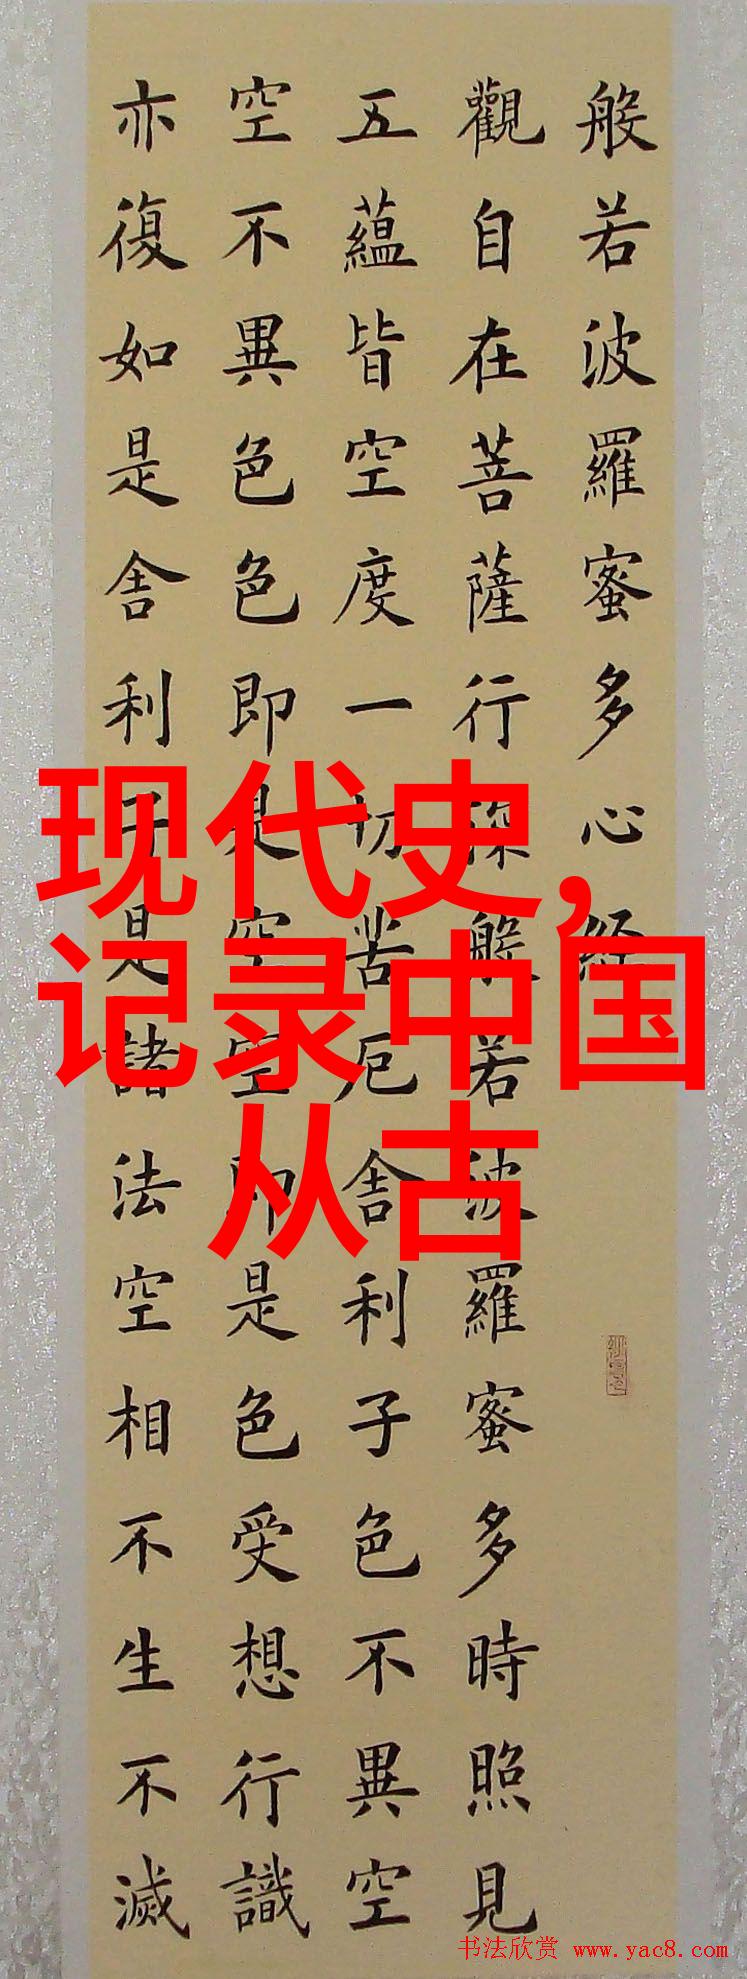 般若波羅蜜多心經
觀自在菩薩行深般若波羅蜜多時照見
五蘊皆空度一切苦厄舍利子色不異空
空不異色色即是空空即是色受想行識
亦復如是舍利子是諸法空相不生不滅
现代史,
记录中国
从古
书法欣赏 www.yac8.com